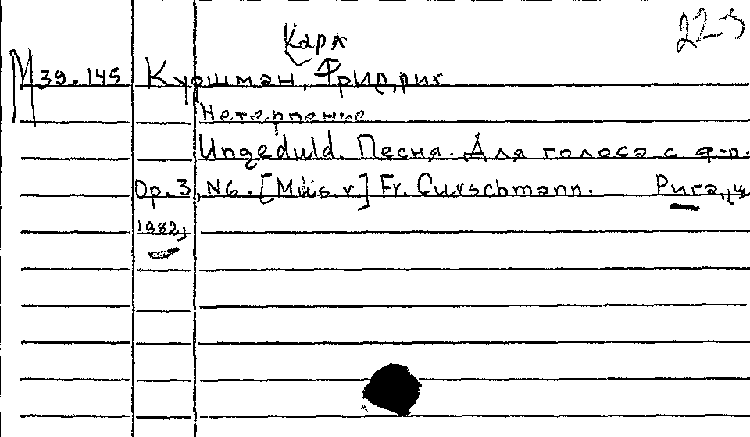 22-5
Карл
М 39.145 Куршман, Фридрих
Нетерпение
Ungeduld. Песня. Для голоса с ф-п.
Op. 3, N6. [Mus.v] Fr. Curschmann. Рига,